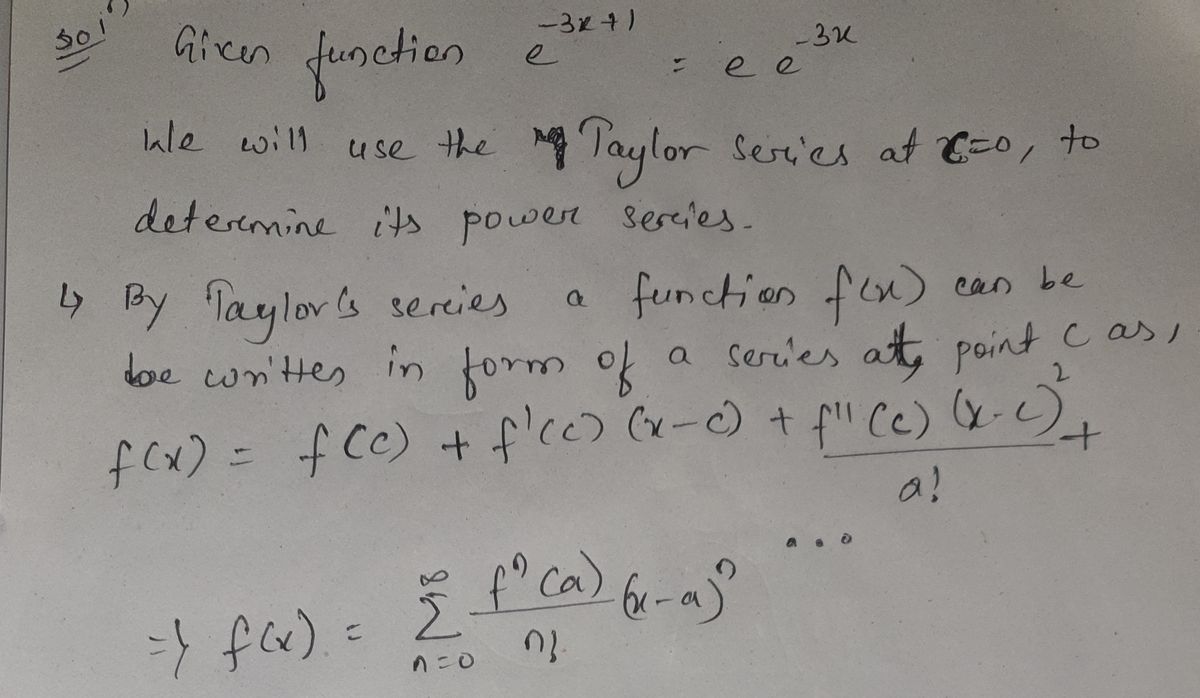 Sol'n)
Given function e^{-3x+1} = e e^{-3x}
We will use the Taylor series at c=0, to
determine its power series.
↳ By Taylor's series a function f(x) can be
be written in form of a series at point c as,
f(x) = f(c) + f'(c) (x-c) + \frac{f''(c) (x-c)^2}{a!} +
...
=> f(x) = \sum_{n=0}^{\infty} \frac{f^n (a)}{n!} (x-a)^n